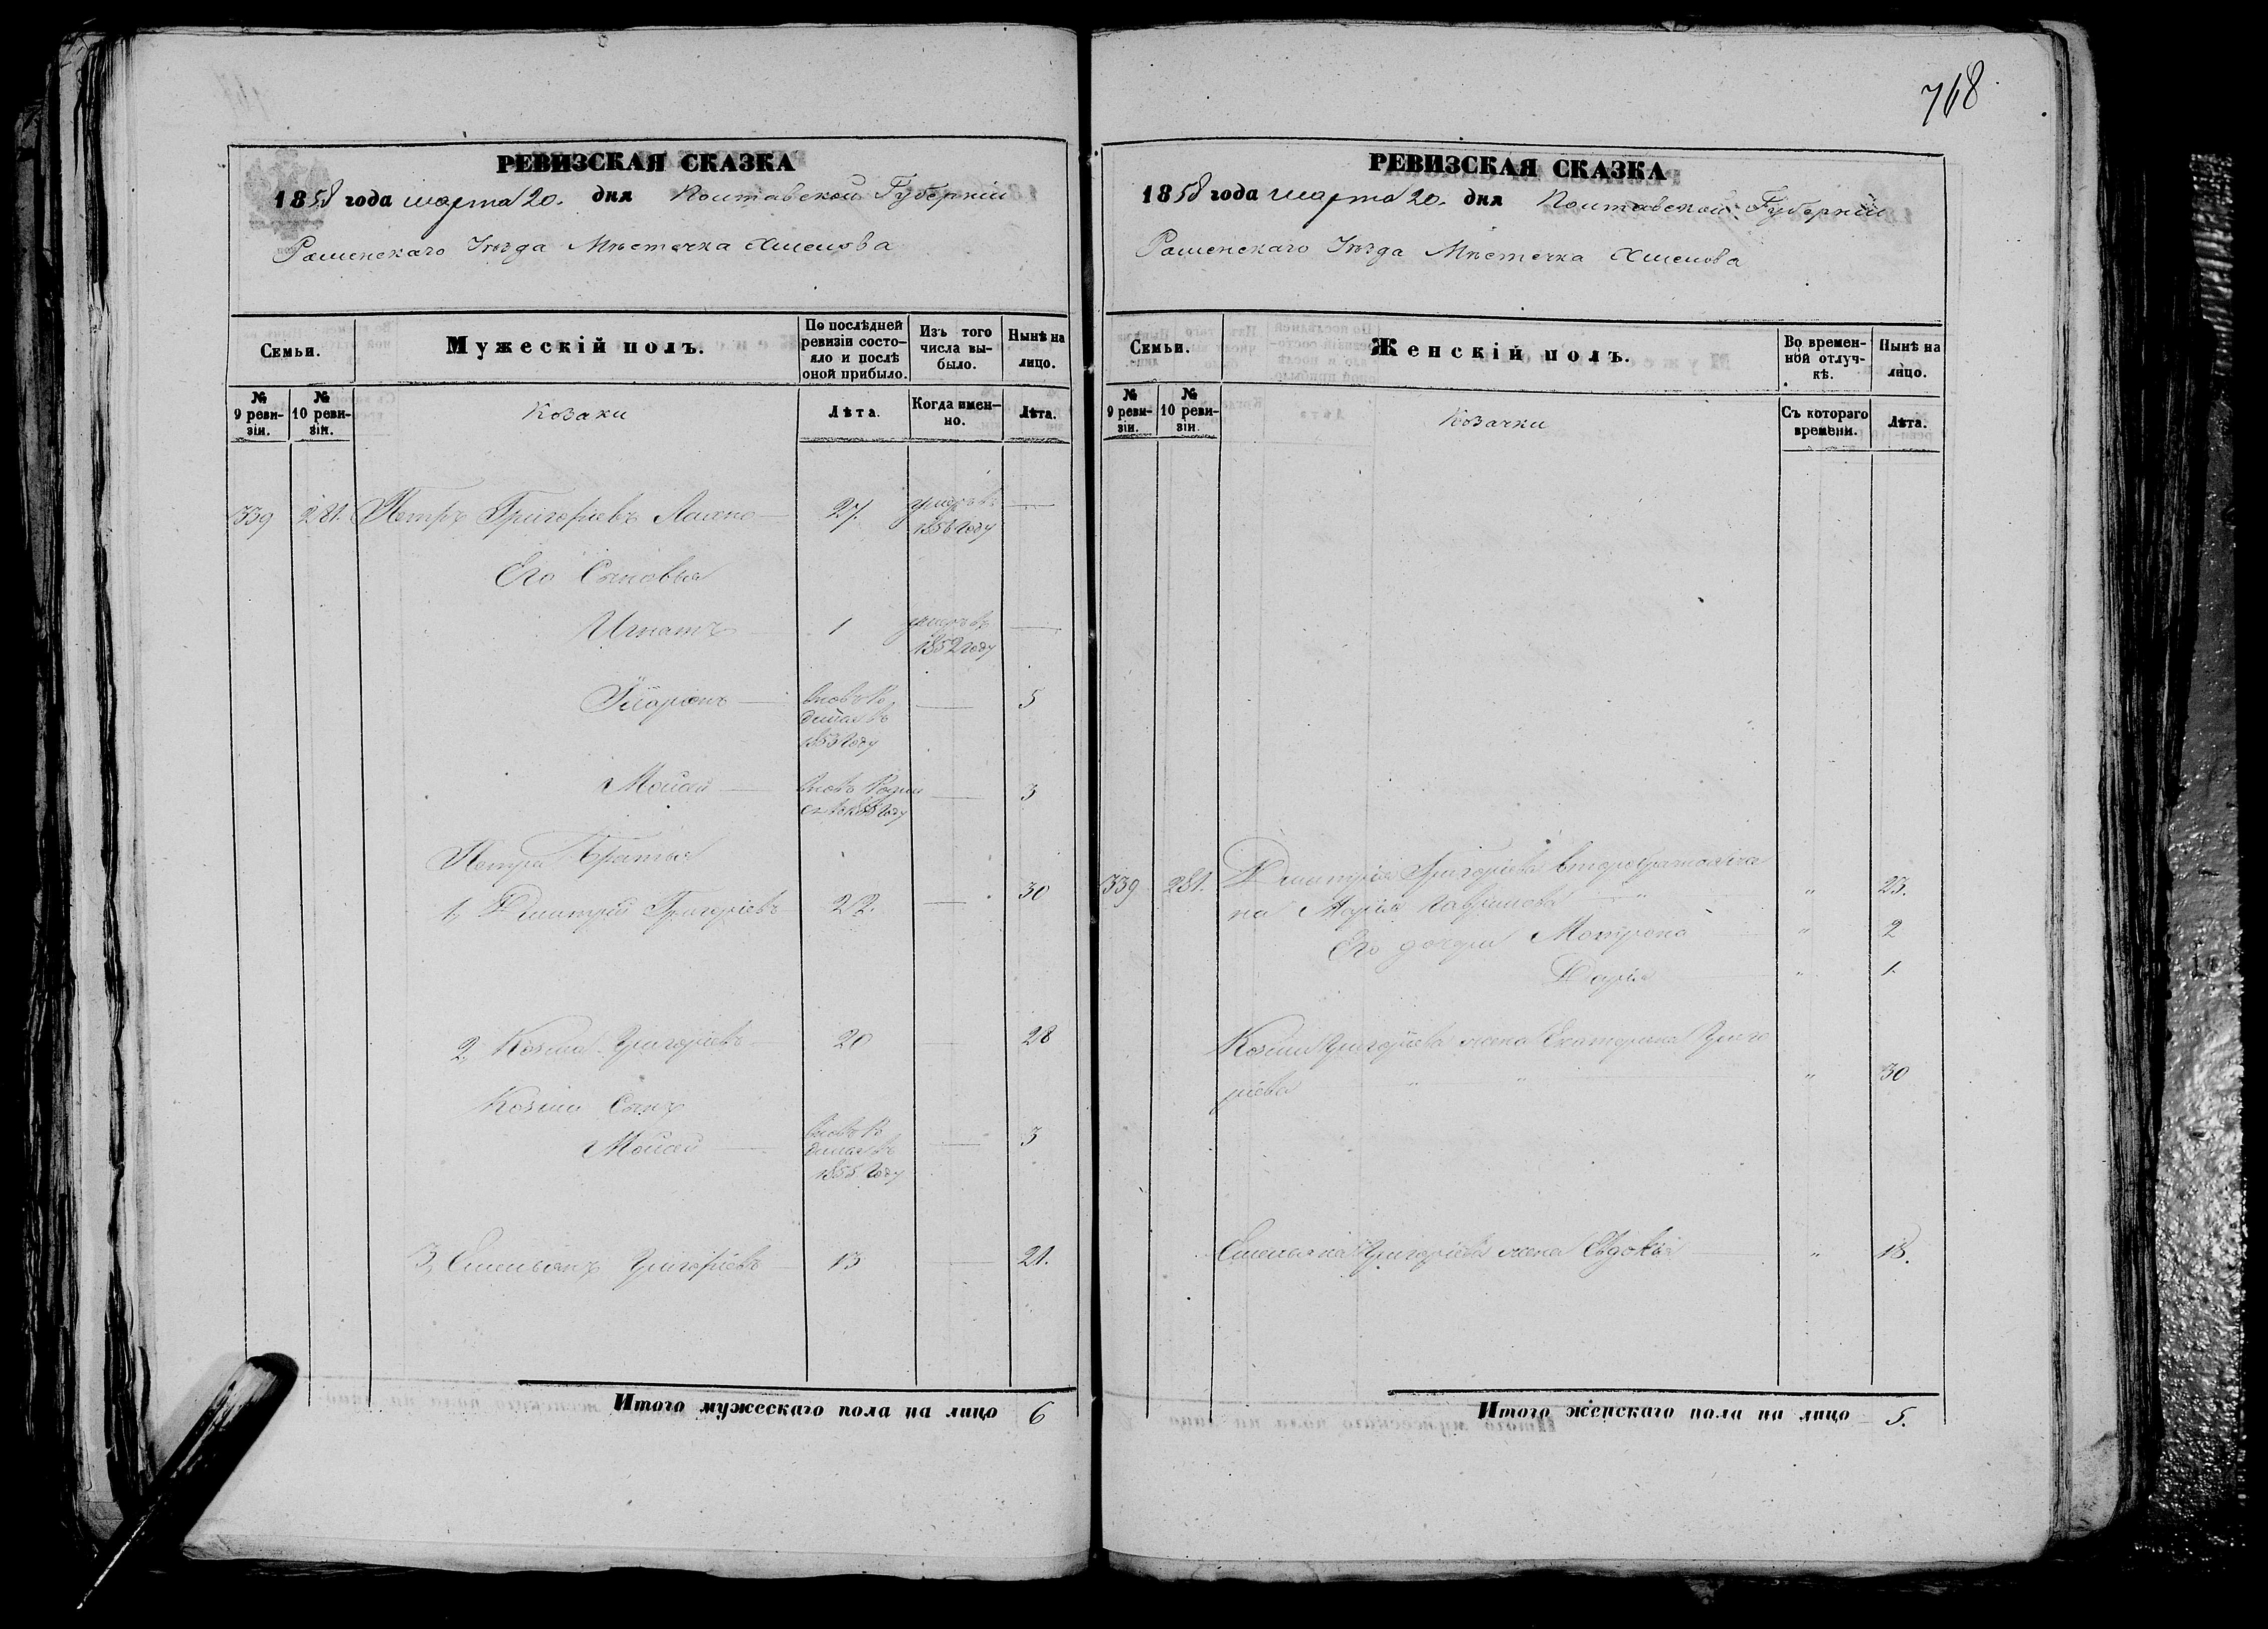 768
РЕВИЗСКАЯ СКАЗКА
1858 года марта 20. дня Полтавской Губерніи
Роменскаго Уѣзда Мѣстечка Смелова
Семьи.
Мужескій полъ.
По послѣдней ревизіи состояло и послѣ оной прибыло.
Изъ того числа выбыло.
Нынѣ на лицо.
№ 9 ревизіи.
№ 10 ревизіи.
Козаки
Лѣта.
Когда именно.
Лѣта.
339 281. Петръ Григорьевъ 27. умеръ въ 1856 году —
Его Сыновья
Игнатъ — 1 умеръ въ 1852 году —
Иларіонъ — вновь родился въ 1853 году — 5
Мойсей — вновь родился въ году — 3
Петра братья
1, Дмитрій Григорьевъ 22. — 30
2, Козма Григорьевъ 20 — 28
Козми Сынъ
Мойсей — вновь родился въ 1855 году — 3
3, Емельянъ Григорьевъ 13 — 21.
Итого мужескаго пола на лицо 6
РЕВИЗСКАЯ СКАЗКА
1858 года марта 20. дня Полтавской Губерніи
Роменскаго Уѣзда Мѣстечка Смелова
Семьи.
Женскій полъ.
Во временной отлучкѣ.
Нынѣ на лицо.
№ 9 ревизіи.
№ 10 ревизіи.
Козачки
Съ котораго времени.
Лѣта.
339 281. Дмитрія Григорьева второбрачная же
на Марія Гаврилова " 23.
Его дочери Мотрона " 2
Дарія " 1.
Козми Григорьева жена Екатерина Григо
рьева " " " 30
Емельяна Григорьева жена Евдокія " 18.
Итого женскаго пола на лицо 5.